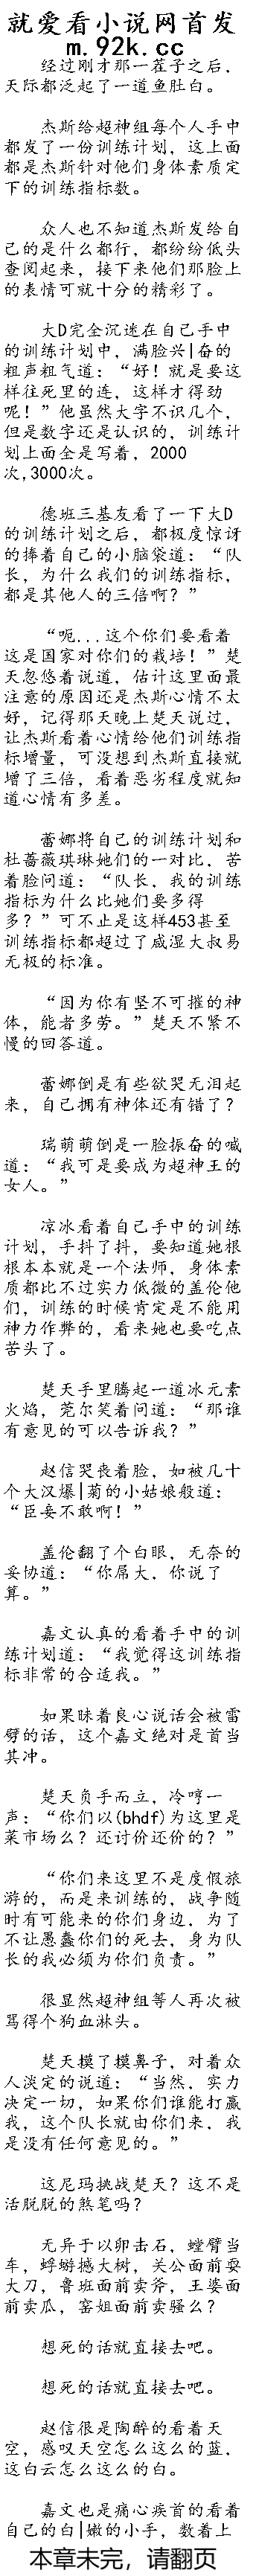 就爱看小说网首发
m.92k.cc
经过刚才那一茬子之后，
天际都泛起了一道鱼肚白。
杰斯给超神组每个人手中
都发了一份训练计划，这上面
都是杰斯针对他们身体素质定
下的训练指标数。
众人也不知道杰斯发给自
己的是什么都行，都纷纷低头
查阅起来，接下来他们那脸上
的表情可就十分的精彩了。
大D完全沉迷在自己手中
的训练计划中，满脸兴|奋的
粗声粗气道：“好！就是要这
样往死里的连，这样才得劲
呢！”他虽然大字不识几个，
但是数字还是认识的，训练计
划上面全是写着，2000
次,3000次。
德班三基友看了一下大D
的训练计划之后，都极度惊讶
的捧着自己的小脑袋道：“队
长，为什么我们的训练指标，
都是其他人的三倍啊？”
“呃...这个你们要看着
这是国家对你们的栽培！”楚
天忽悠着说道，估计这里面最
注意的原因还是杰斯心情不太
好，记得那天晚上楚天说过，
让杰斯看着心情给他们训练指
标增量，可没想到杰斯直接就
增了三倍，看着恶劣程度就知
道心情有多差。
蕾娜将自己的训练计划和
杜蔷薇琪琳她们的一对比，苦
着脸问道：“队长，我的训练
指标为什么比她们要多得
多？”可不止是这样453甚至
训练指标都超过了咸湿大叔易
无极的标准。
“因为你有坚不可摧的神
体，能者多劳。”楚天不紧不
慢的回答道。
蕾娜倒是有些欲哭无泪起
来，自己拥有神体还有错了？
瑞萌萌倒是一脸振奋的喊
道：“我可是要成为超神王的
女人。”
凉冰看着自己手中的训练
计划，手抖了抖，要知道她根
根本本就是一个法师，身体素
质都比不过实力低微的盖伦他
们，训练的时候肯定是不能用
神力作弊的，看来她也要吃点
苦头了。
楚天手里腾起一道冰元素
火焰，莞尔笑着问道：“那谁
有意见的可以告诉我？”
赵信哭丧着脸，如被几十
个大汉爆|菊的小姑娘般道：
“臣妾不敢啊！”
盖伦翻了个白眼，无奈的
妥协道：“你屌大，你说了
算。”
嘉文认真的看着手中的训
练计划道：“我觉得这训练指
标非常的合适我。”
如果昧着良心说话会被雷
劈的话，这个嘉文绝对是首当
其冲。
楚天负手而立，冷哼一
声：“你们以(bhdf)为这里是
菜市场么？还讨价还价的？”
“你们来这里不是度假旅
游的，而是来训练的，战争随
时有可能来的你们身边，为了
不让愚蠢你们的死去，身为队
长的我必须为你们负责。”
很显然超神组等人再次被
骂得个狗血淋头。
楚天摸了摸鼻子，对着众
人淡定的说道：“当然，实力
决定一切，如果你们谁能打赢
我，这个队长就由你们来，我
是没有任何意见的。”
这尼玛挑战楚天？这不是
活脱脱的煞笔吗？
无异于以卵击石，螳臂当
车，蜉蝣撼大树，关公面前耍
大刀，鲁班面前卖斧，王婆面
前卖瓜，窑姐面前卖骚么？
想死的话就直接去吧。
想死的话就直接去吧。
赵信很是陶醉的看着天
空，感叹天空怎么这么的蓝，
这白云怎么这么的白。
嘉文也是痛心疾首的看着
自己的白|嫩的小手，数着上
本章未完，请翻页